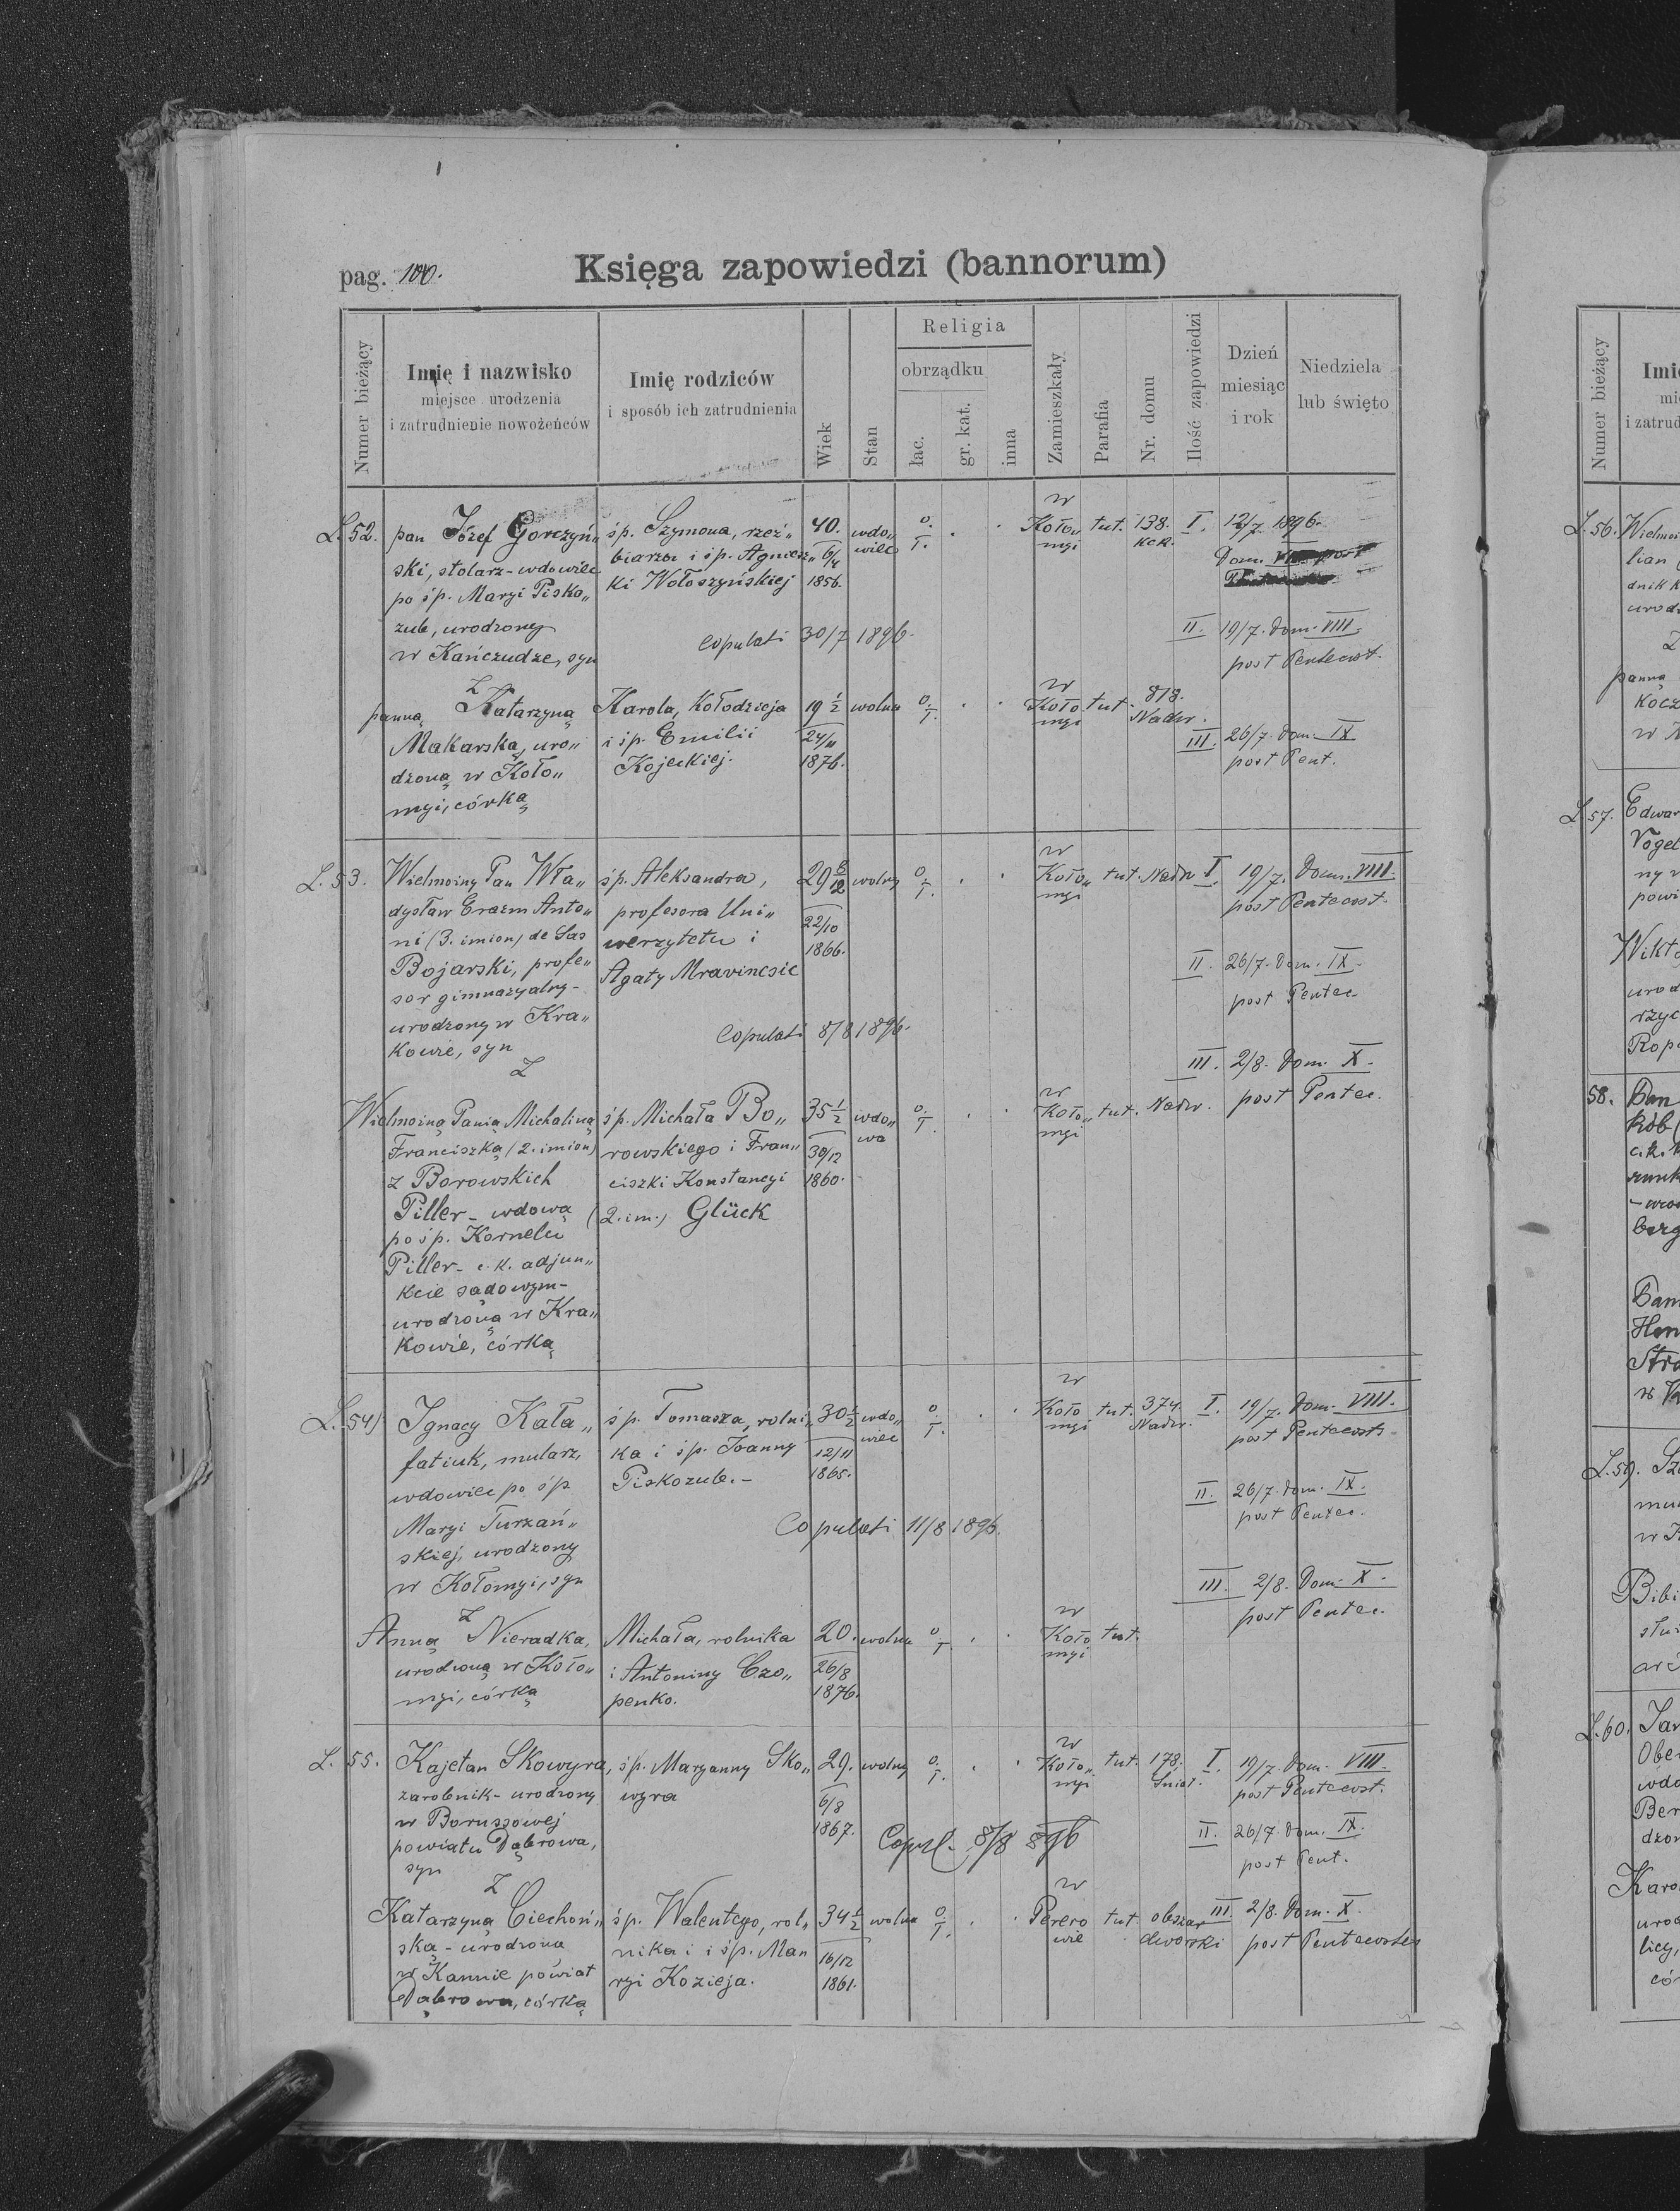 pag. 100.
Księga zapowiedzi (bannorum)
Numer bieżący
Imię i nazwisko
miejsce urodzenia
i zatrudnienie nowożeńców
Imię rodziców
i sposób ich zatrudnienia
Wiek
Stan
Religia
obrządku
łac.
gr. kat.
inna
Zamieszkały
Parafia
Nr. domu
Ilość zapowiedzi
Dzień
miesiąc
i rok
Niedziela
lub święto
L. 52.
pan Józef Gorczyń„
ski, stolarz - wdowiec
po śp. Maryi Pisko„
zub, urodzony
w Kańczudze, syn
śp. Szymona, rzeź„
biarza i śp. Agniesz„
ki Wołoszyńskiej
40.
6/4
1856.
wdo„
wiec
o.
ł.
w
Koło„
myi
tut.
138.
I.
12/7. 1896.
Dom.
II. 19/7. Dom. VIII.
post Pentecost.
copulati 30/7 1896.
Z
panną Katarzyną
Makarską, uro„
dzoną w Koło„
myi, córką
Karola, Kołodzieja
i śp. Emilii
Kojeckiej.
19 1/2
24/11
1876.
wolna
o.
ł.
w
Koło
myi
tut.
878.
Nadw.
III. 26/7. Dom. IX
post Pent.
L. 53.
Wielmożny Pan Wła„
dysław Erazm Anto„
ni (3. imion) de Sas
Bojarski, profe„
sor gimnazyalny -
urodzony w Kra„
kowie, syn
Z
śp. Aleksandra,
profesora Uni„
werzytetu i
Agaty Mravincsic
29
22/10
1866.
wolny
o.
ł.
w
Koło„
myi
tut.
Nadw
I. 19/7. Dom. VIII.
post Pentecost.
II. 26/7. Dom. IX.
post Pentec.
Copulati 8/8 1896.
III. 2/8. Dom. X.
post Pentec.
Wielmożną Panią Michaliną
Franciszką (2. imion)
z Borowskich
Piller - wdową
po śp. Kornelu
Piller - c. k. adjun„
kcie sądowym -
urodzoną w Kra„
kowie, córką
śp. Michała Bo„
rowskiego i Fran„
ciszki Konstancyi
(2. im.) Glück
35 1/2
30/12
1860.
wdo„
wa
o.
ł.
w
Koło„
myi
tut.
Nadw.
L. 54)
Ignacy Kała„
fatiuk, mularz,
wdowiec po śp
Maryi Turzań„
skiej, urodzony
w Kołomyi, syn
Z
śp. Tomasza, rolni„
ka i śp. Joanny
Piskozub. -
30 1/2
12/11
1865.
wdo„
wiec
o
ł.
w
Koło
myi
tut.
374.
Nadw.
I. 19/7. Dom. VIII.
post Pentecost.
II. 26/7. Dom. IX.
post Pentec.
Copulati 11/8 1896.
III. 2/8. Dom. X.
post Pentec.
Anną Nieradka,
urodzoną w Koło„
myi, córką
Michała, rolnika
i Antoniny Czo„
penko.
20.
26/8
1876.
wolna
o
ł
w
Koło
myi
tut.
L. 55.
Kajetan Skowyra,
zarobnik - urodzony
w Borussowej
powiatu Dąbrowa,
syn
Z
śp. Maryanny Sko„
wyra
29.
6/8
1867.
wolny
o.
ł.
w
Koło„
myi
tut.
178.
Śniat.
I. 19/7. Dom. VIII.
post Pentecost.
Copul. 8/8 896
II. 26/7. Dom. IX.
post Pent.
Katarzyną Ciechoń„
ską - urodzoną
w Kannie powiat
Dąbrowa, córką
śp. Walentego, rol„
nika i i śp. Ma
ryi Kozieja.
34 1/2
16/12
1861.
wolna
o
ł.
w
Perero
wie
tut.
obszar
dworski
III 2/8. Dom. X.
post Pentecostes
Numer bieżący
L. 56.
L. 57.
58.
L. 59.
L. 60.